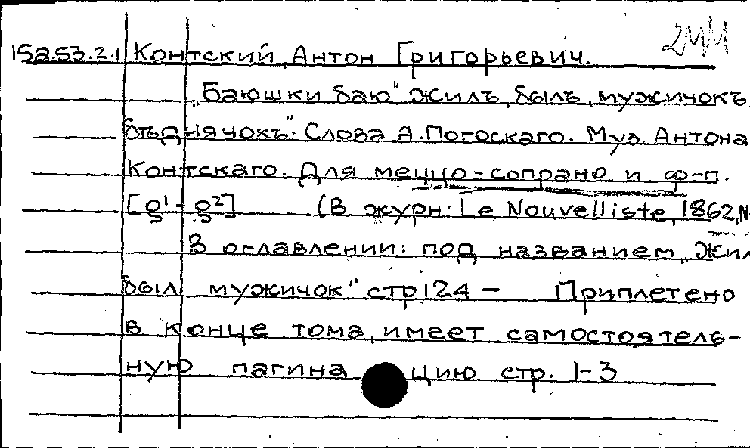 15a.53.2.1 Контский, Антон Григорьевич.
„Баюшки баю" Жилъ, былъ, мужичокъ
бѣднячокъ". Слова А. Погоскаго. Муз. Антона
Контскаго. Для меццо-сопрано и ф-п.
[g¹ - g²] (В журн: Le Nouvelliste, 1862, №
В оглавлении: под названием „Жил
был мужичок" стр 124 - Приплетено
в конце тома, имеет самостоятель-
ную пагина цию стр. 1-3